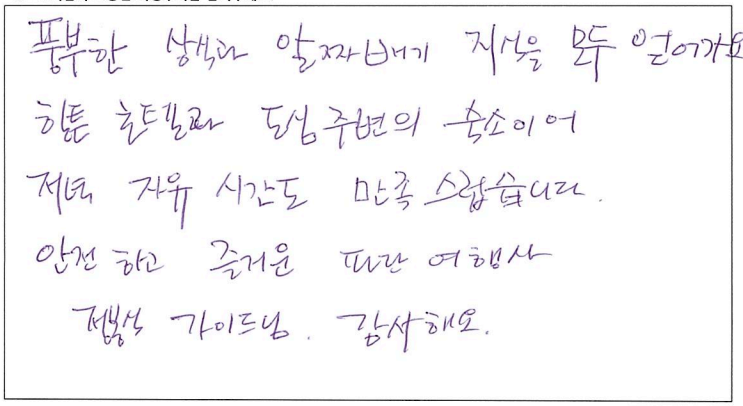 풍부한 상식과 알짜배기 지식을 모두 얻어가요
힐튼 호텔과 도심주변의 숙소이어
저녁 자유 시간도 만족스럽습니다.
안전하고 즐거운 파란 여행사
가이드님. 감사해요.